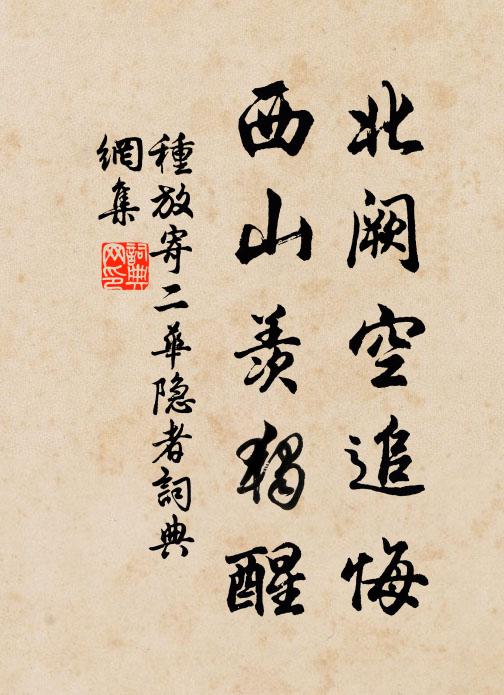 北闕空追悔
西山羨獨醒
種放寄二華隐者詞典
網集
詞典網印